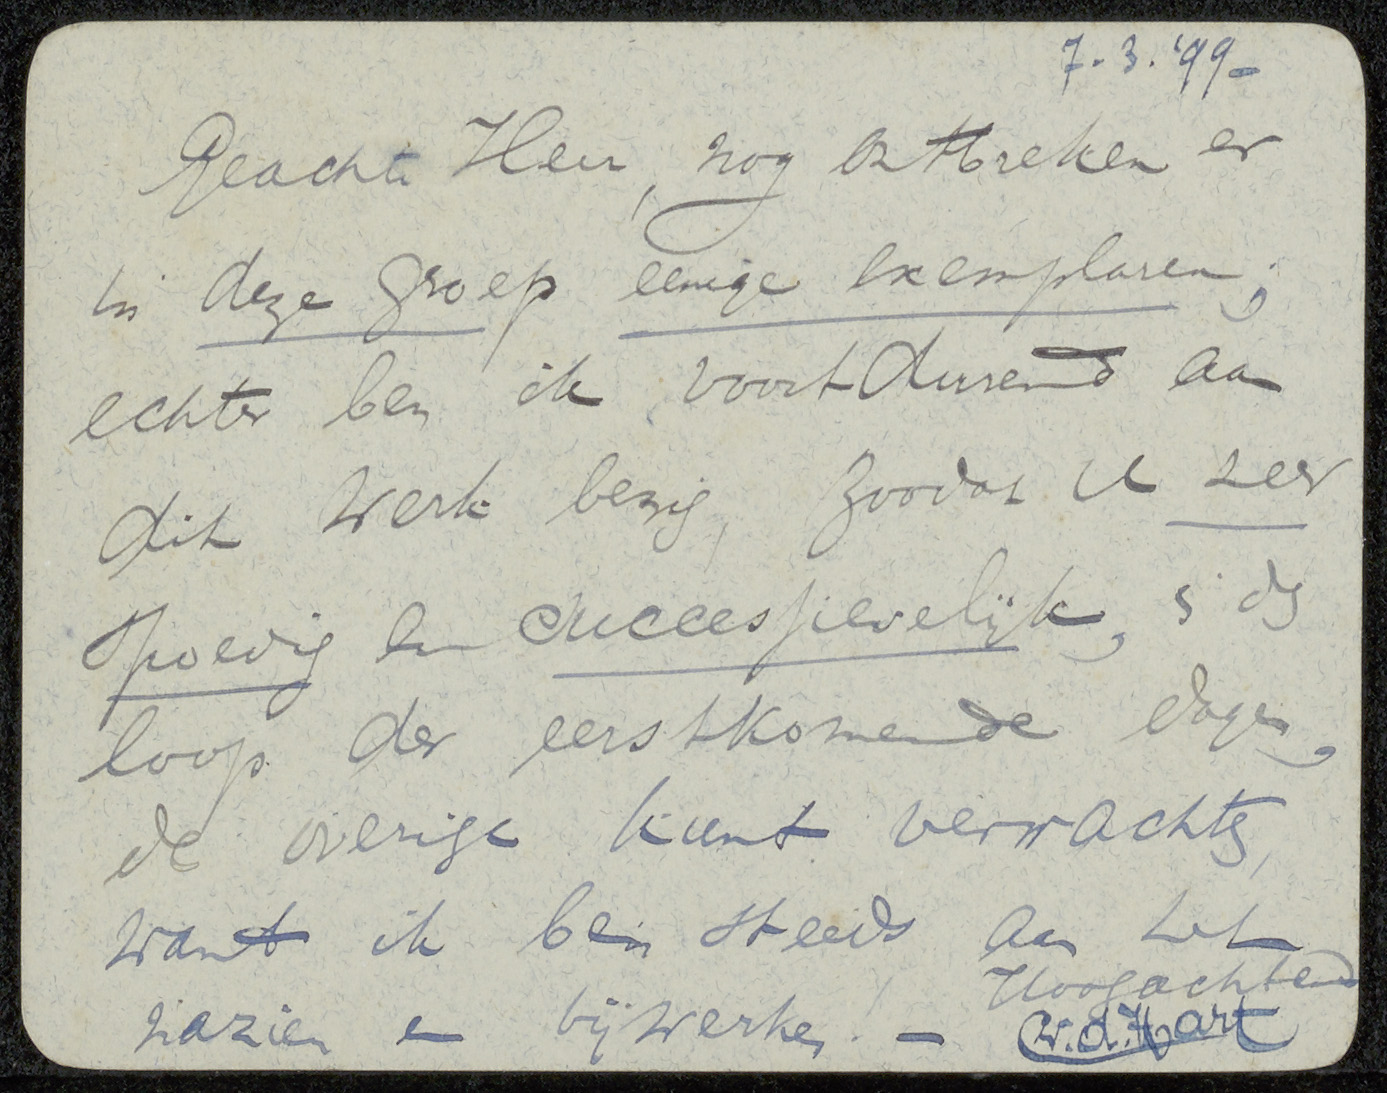 7.3.'99-
Geachte Heer, nog ontbreken er
in deze groep eenige exemplaren;
echter ben ik voortdurend aan
dit werk bezig, zoodat U zeer
spoedig en successievelijk, i/d
loop der eerstkomende dagen,
de overige kunt verwachten,
want ik ben steeds aan het
nazien en bijwerken! -
Hoogachtend
W.d.Hart